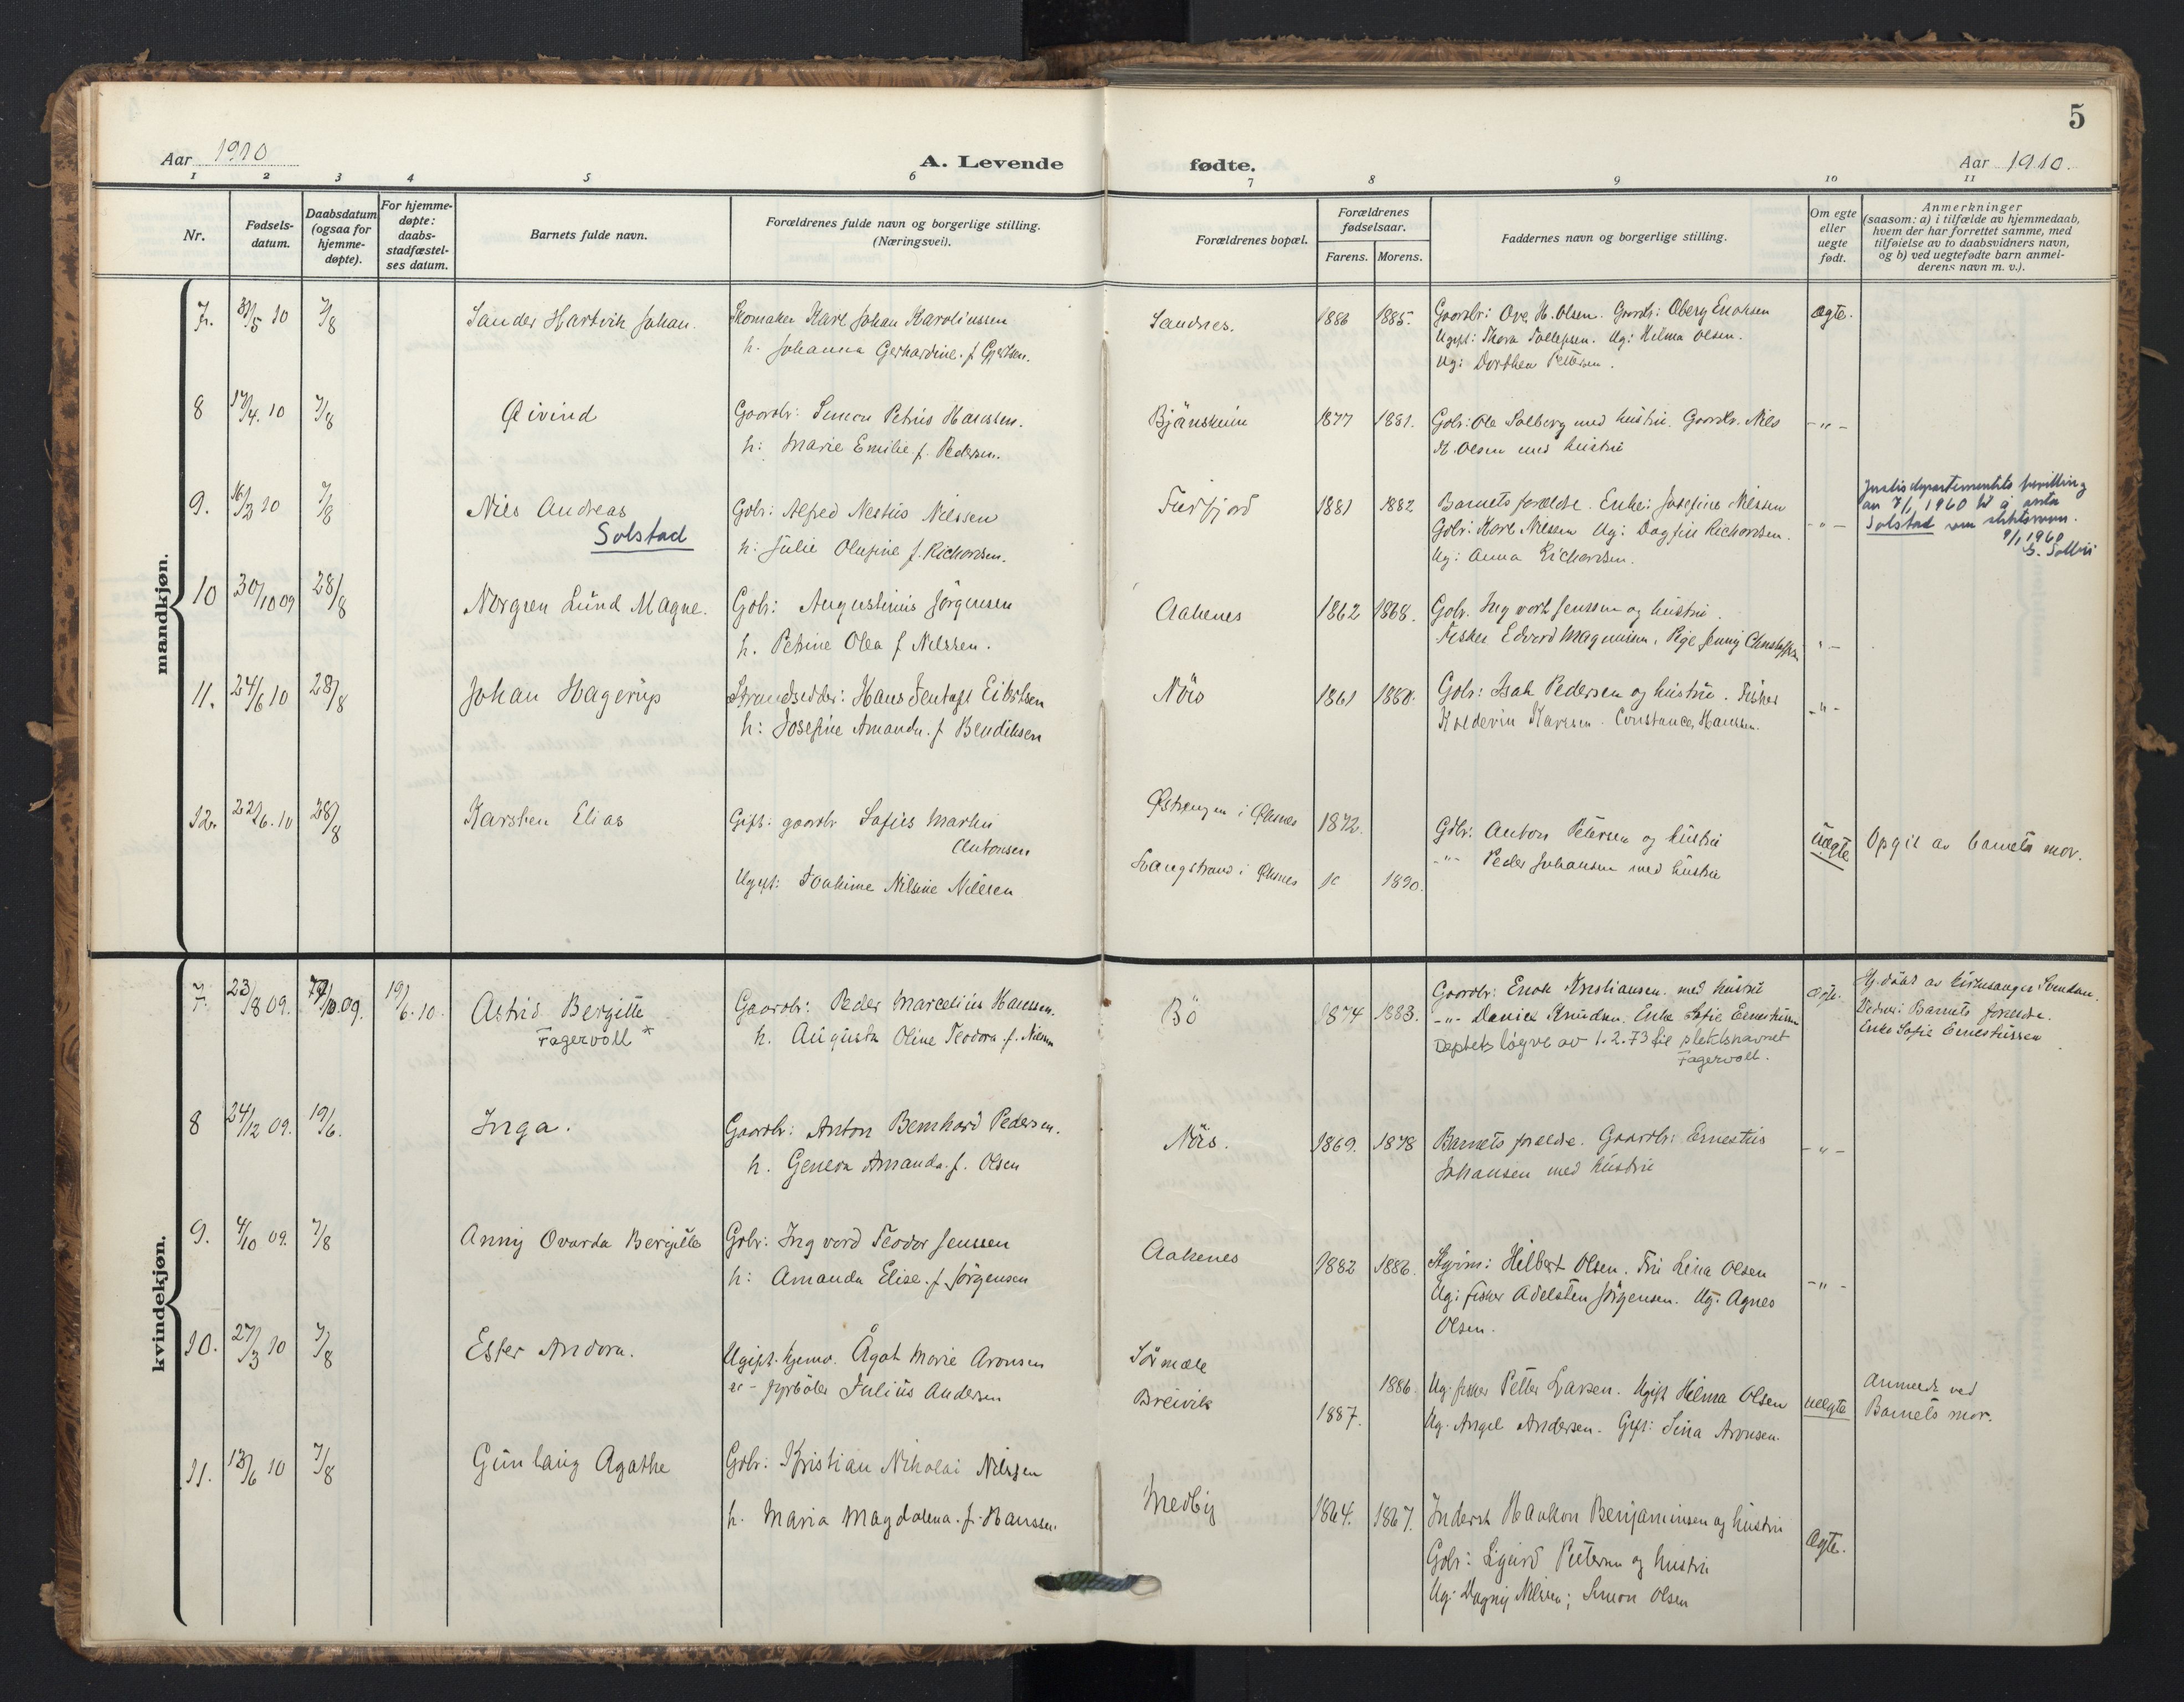 5
Aar 1910
A. Levende fødte.
Aar 1910.
1 2 3 4 5 6 7 8 9 10 11
Nr.
Fødsels-
datum.
Daabsdatum
(ogsaa for
hjemme-
døpte).
For hjemme-
døpte:
daabs-
stadfæstel-
ses datum.
Barnets fulde navn.
Forældrenes fulde navn og borgerlige stilling.
(Næringsvei).
Forældrenes bopæl.
Forældrenes
fødselsaar.
Farens. Morens.
Faddernes navn og borgerlige stilling.
Om egte
eller
uegte
født.
Anmerkninger
(saasom: a) i tilfælde av hjemmedaab,
hvem der har forrettet samme, med
tilføielse av to daabsvidners navn,
og b) ved uegtefødte barn anmel-
derens navn m. v.).
mandkjøn.
7. 7/8 Sander Hartvik Johan. Skomaker Karl Johan Karoliussen Sandnes. 1886 1885. Gaardbr: Ove H. Olsen. Gaardb: Oberg Enoksen Ægte.
h. Johanna Gerhardine f. Gjertsen. Ugift: Thora Tollefsen. Ug: Hilma Olsen.
Ug: Dorthea Pettersen.
8 17/4.10 7/8 Øivind Gaardbr: Simon Petrus Hanssen. Bjänskinn 1877 1881. Gbr: Ole Solberg med hustru. Gaardbr. Nils -"-
h: Marie Emilie f. Pedersen. K. Olsen med hustru
9. 16/3 10 7/8 Nils Andreas Gbr: Alfred Nestius Nilssen 1881 1882 Barnets forældre. Enke: Josefine Nilssen -"-
Solstad h: Julie Olufine f. Richardsen. Gbr: Karl Nilsen Ug: Dagfin Richardsen.
Ug: Anna Richardsen.
Justisdepartementets bevilling
av 7/1 1960 til å anta
Solstad som slektsnavn.
9/1 1960
10 30/10 09 28/8 Norgren Lund Magne. Gbr: Augustinus Jørgensen Aakenes 1862 1868. Gbr. Ingvart Jenssen og hustru. "-
h. Petrine Olea f Nilssen. Fisker Edvard Magnussen, Pige Jenny
11. 24/6 10 28/8 Johan Hagerup Strandsidder: Hans Jentoft Eilertsen Nöss 1861 1880. Gbr: Isak Pedersen og hustru. Fisker -"-
h: Josefine Amanda f Bendiksen Constance Hanssen.
12. 22/6.10 28/8 Karsten Elias Gift: gaardbr Sofus Martin 1872. Gdbr: Anton Petersen og hustru Uægte Opgit av barnets mor.
Antonsen
Ugift: Joakime Nilsine Nilssen Langstrand i Øksnes 1890. -"- Peder Johansen med hustru
kvindekjøn.
7. 23/8 09. 19/6.10. Astrid Bergitte Gaardbr: Peder Marcelius Hanssen. Bö 1874 1883. Gaardbr: Enok Kristiansen med hustru Ægte. Hj.døbt av kirkesanger
Fagervoll * h. Augusta Oline Teodora f. Nilssen -"- Daniel Knudsen. Enke Sofie Ernestussen
Deptets løyve av 1.2.73 til slektsnavnet
Fagervoll.
Vidner: Barnets forældre.
Enke Sofie Ernestussen
8 24/12 09. 19/6. Inga. Gaardbr: Anton Bernhard Pedersen. Nöss. 1869. 1878 Barnets forældre. Gaardbr: Ernestus -"-
h. Geneva Amanda f. Olsen Johansen med hustru
9. 4/10 09. 7/8 Anny Ovarda Bergitte Gbr: Ingvard Teodor Jenssen Aakenes 1882 1886. Hilbert Olsen. Fru Lina Olsen -"-
h: Amanda Elise f. Jörgensen Ug: fisker Adelsten Jörgensen. Ug: Agnes
Olsen.
10. 27/3 10 7/8 Ester Andora. Ugift. hjemv. Ågot Marie Aronsen Sörmæle 1886. Ug. fisker Petter Larsen. Ugift Hilma Olsen uægte Anmeldt ved
fyrbøter Julius Andersen Breivik 1887. Ug. Angel Andersen. Gift: Lina Aronsen. Barnets mor.
11. 13/6 10 7/8 Gunlaug Agathe Gbr: Kristian Nikolai Nilssen Medby 1864. 1867. Inderst Haakon Benjaminsen og hustru Ægte.
h. Maria Magdalena f. Hanssen. Gbr: Sigurd Petersen og hustru
Ug: Dagny Nilssen; Simon Olsen